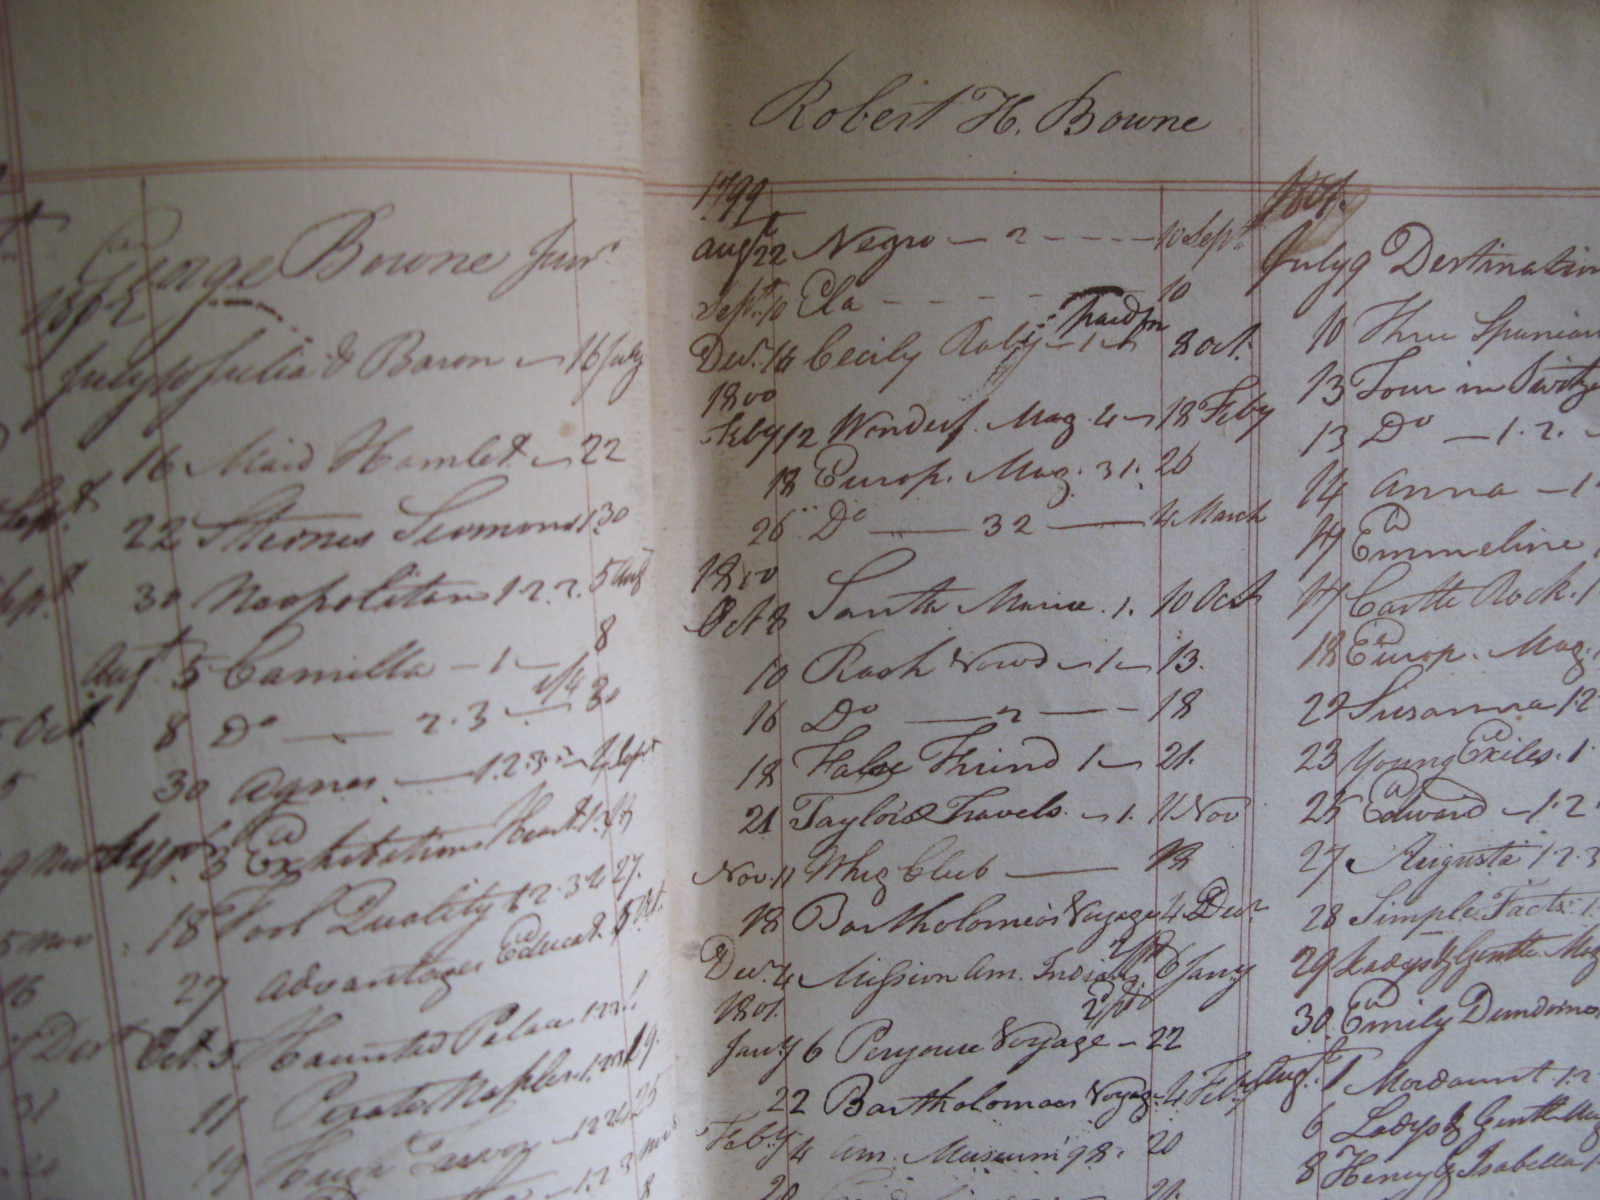 George Bowne Junr
1802
July 10 Julia & Baron 16 July
16 Maid Hamlet 22
22 Sermons 1 30
30 Neapolitan 1.2.2. 5 Augt
Augt 5 Camilla - 1 - 8
8 Do 2.3 30
30 Agnes 1.2.3 2 Sept
3 Exhibitions Heart 1.
18 Fool Quality 1.2.3.4 27.
27 Advantages Educat. 5 Oct.
Oct. 5 Haunted Palace
11 Pirate Naples 19.
19 Hugh 25
Robert H. Bowne
1799
Augt 22 Negro - 2 - - - - 10 Sept
Sept. 10 Ela - - - - 10
Decr. 14 Cecily 1 8 Oct.
1800
Feby 12 Wonderf. Mag. 4 18 Feby
18 Europ. Mag. 31. 26
26 Do 32 4 March
1800
Oct 8 Santa Maria. 1. 10 Oct
10 Rash Vows 1 13.
16 Do 2 18
18 False Friend 1 21.
21 Taylor's Travels 1. 11 Nov
Nov. 11 Whig Club 18
18 Bartholomeos Voyage 4 Decr
Decr. 4 Mission Am. Indians 6 Jany
1801.
Jany 6 Perouse Voyage 22
22 Bartholomeos Voyag. 4 Feby
Feby 4 Am. Museum 98. 20
20 21.
1801.
July 9 Destination
10 Three Spaniar
13 Tour in Switze
13 Do 1.2.
14 Anna 1
14 Emmeline
17 Castle Rock. 1
18 Europ. Mag.
22 Susanna 1.2
23 Young Exiles. 1
25 Edward 1.2
27 Augusta 1.2.3
28 Simple Facts. 1.
29 Ladys & Gentle Mag
30. Emily Dundorno
Aug. 1 Mordaunt 1.2
6 Ladys & Gentle Ma
8 Henry & Isabella 1